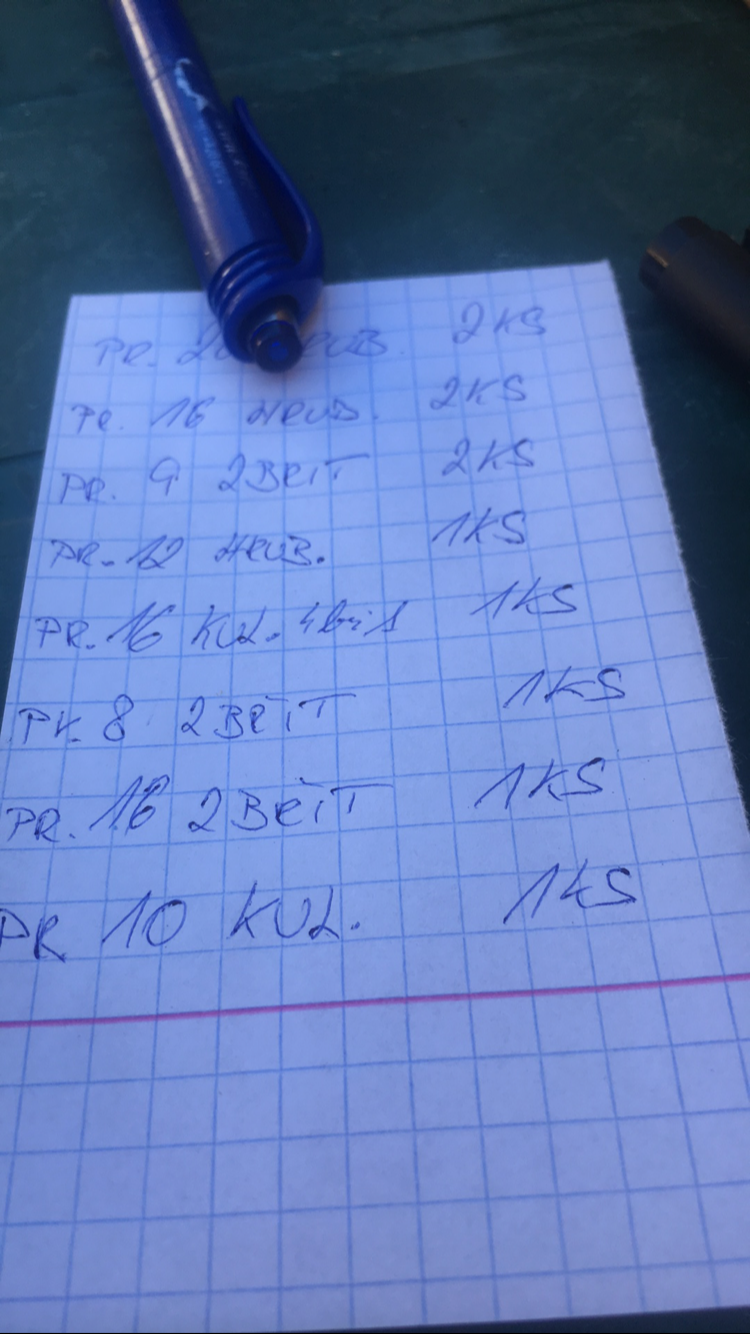 PR. 2KS
PR. 16 HRUB. 2KS
PR. 9 2BRIT 2KS
PR. 12 HRUB. 1KS
PR. 16 KUL. 1KS
PR. 8 2BRIT 1KS
PR. 16 2BRIT 1KS
PR 10 KUL. 1KS